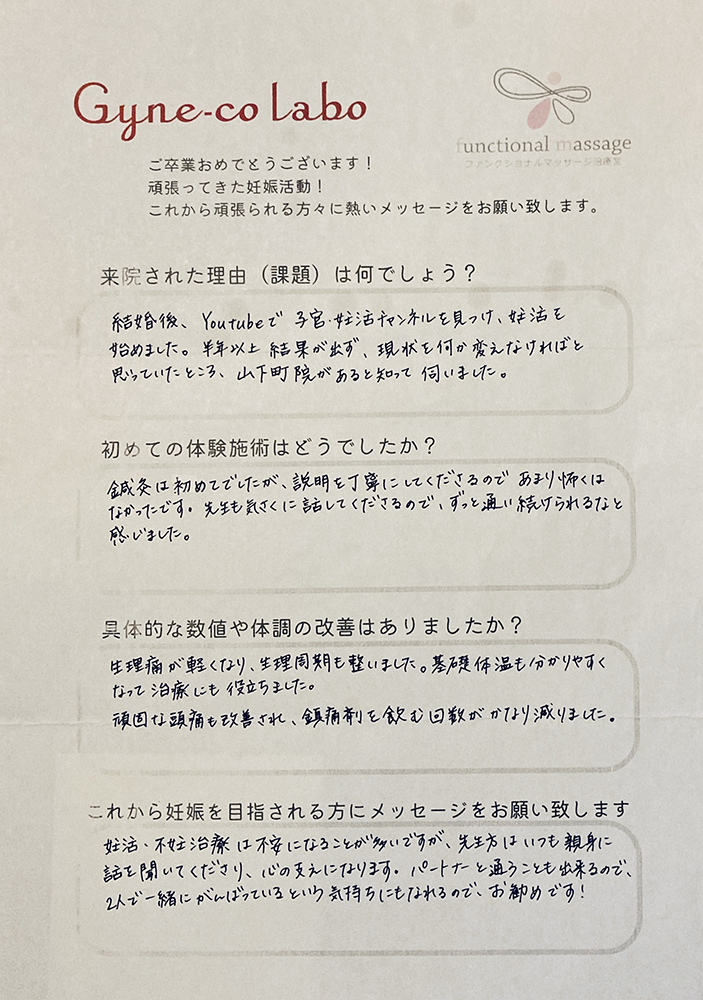 Gyne-co labo
functional massage
ファンクショナルマッサージ治療室
ご卒業おめでとうございます！
頑張ってきた妊娠活動！
これから頑張られる方々に熱いメッセージをお願い致します。
来院された理由（課題）は何でしょう？
結婚後、Youtubeで 子宮・妊活チャンネルを見つけ、妊活を
始めました。半年以上 結果が出ず、現状を何か変えなければと
思っていたところ、山下町院があると知って 伺いました。
初めての体験施術はどうでしたか？
鍼灸は初めてでしたが、説明を丁寧にしてくださるので あまり怖くは
なかったです。先生も気さくに話してくださるので、ずっと通い続けられるなと
感じました。
具体的な数値や体調の改善はありましたか？
生理痛が軽くなり、生理周期も整いました。基礎体温も分かりやすく
なって 治療にも役立ちました。
頑固な頭痛も改善され、鎮痛剤を飲む回数がかなり減りました。
これから妊娠を目指される方にメッセージをお願い致します
妊活・不妊治療は不安になることが多いですが、先生方はいつも親身に
話を聞いてくださり、心の支えになります。パートナーと通うことも出来るので、
2人で一緒にがんばっているという気持ちにもなれるので、お勧めです！